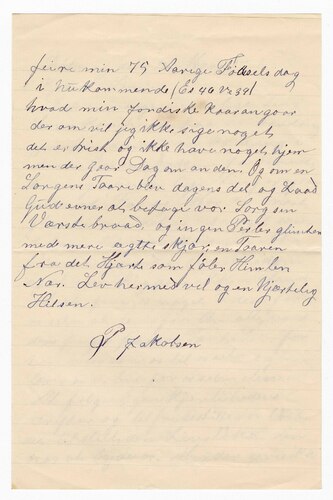 feire min 75 Aarige Fødsels dag
i hukommende (Es 40 Vs 31)
hvad min jordiske kaar angaar
der om vil jeg ikke sige noget,
det er trist og ikke have noget hjem
men der gaar Dag om anden. Og om en
Sorgens Taare blev dagens del og
Gud evner at befage vor Sorg sin
Værste braad, og ingen Perler glindser
med mere ægthe skjær, en Taaren
fra det Hjarte som føler Himlen
Nær. Lev hermed vel og en Hjærtelig
Hilsen.
P Jakobsen